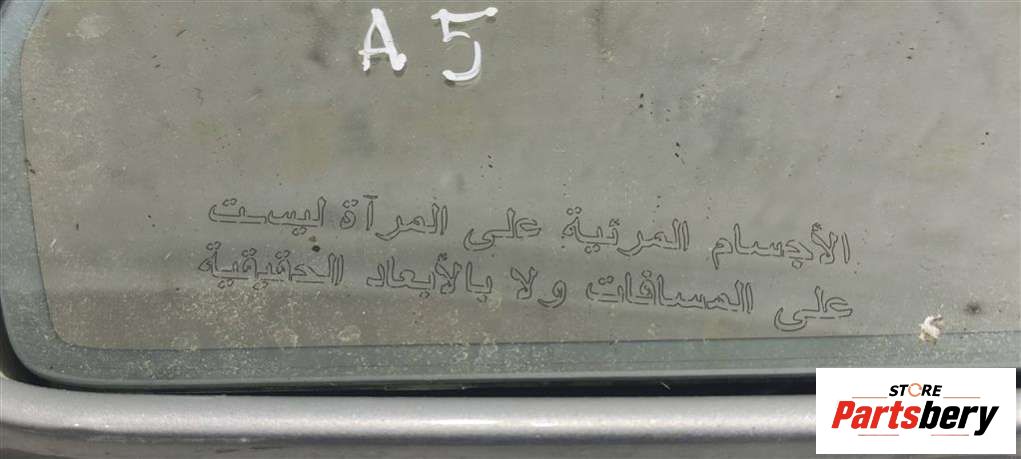 A5
الأجسام المرئية على المرآة ليست
على المسافات ولا بالأبعاد الحقيقية
STORE
Partsbery